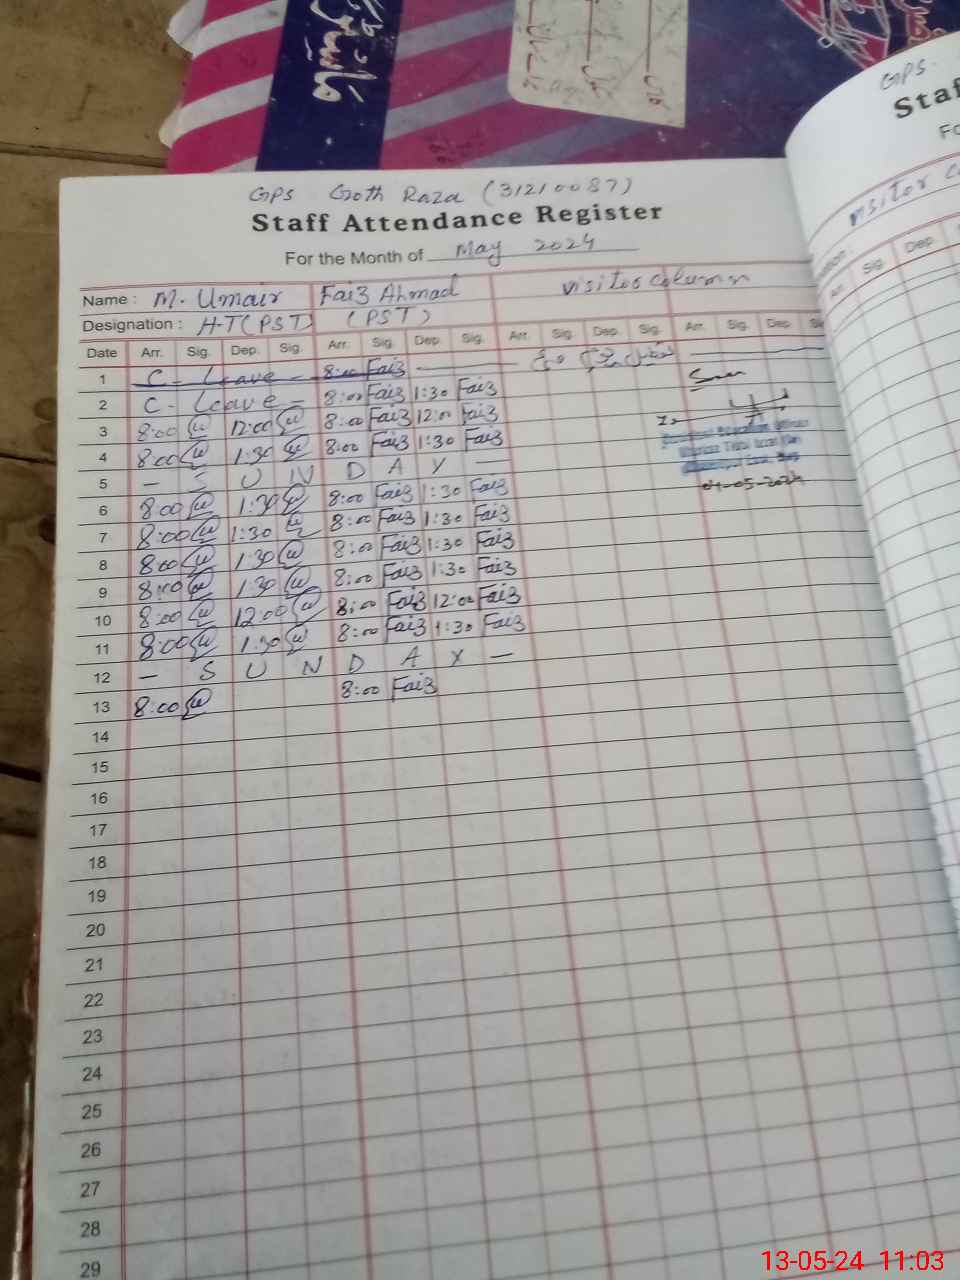 GPS Goth Raza (31210087)
Staff Attendance Register
For the Month of May 2024
Name : M. Umair Faiz Ahmad visitor column
Designation : H-T (PST) (PST)
Date Arr. Sig. Dep. Sig. Arr. Sig. Dep. Sig. Arr. Sig. Dep. Sig. Arr. Sig. Dep.
1 C - Leave - 8:00 Faiz
2 C - Leave - 8:00 Faiz 1:30 Faiz
3 8:00 12:00 8:00 Faiz 12:00 Faiz
4 8:00 1:30 8:00 Faiz 1:30 Faiz
5 — S U N D A Y —
04-05-2024
6 8:00 1:30 8:00 Faiz 1:30 Faiz
7 8:00 1:30 8:00 Faiz 1:30 Faiz
8 8:00 1:30 8:00 Faiz 1:30 Faiz
9 8:00 1:30 8:00 Faiz 1:30 Faiz
10 8:00 12:00 8:00 Faiz 12:00 Faiz
11 8:00 1:30 8:00 Faiz 1:30 Faiz
12 — S U N D A Y —
13 8:00 8:00 Faiz
14
15
16
17
18
19
20
21
22
23
24
25
26
27
28
29
GPS
Staf
Fo
visitor c
Arr. Sig. Dep.
13-05-24 11:03